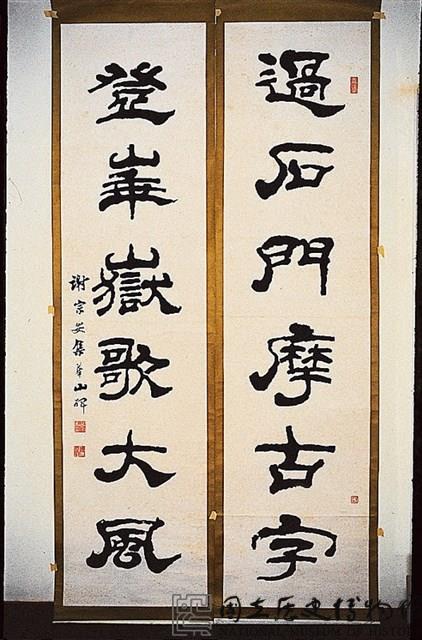 過石門摩古字
登崋嶽歌大風
謝宗安集華山碑
國立歷史博物館